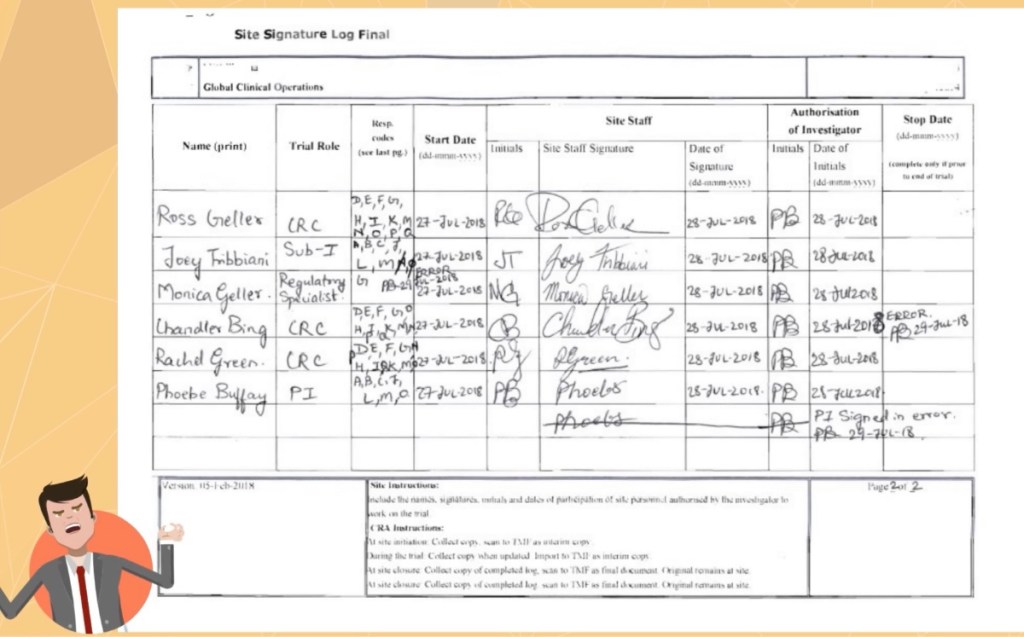 Site Signature Log Final
Global Clinical Operations
Name (print) Trial Role Resp. codes (see last pg.) Start Date (dd-mmm-yyyy) Site Staff Authorisation of Investigator Stop Date (dd-mmm-yyyy) (complete only if prior to end of trial)
Initials Site Staff Signature Date of Signature (dd-mmm-yyyy) Initials Date of Initials (dd-mmm-yyyy)
Ross Geller CRC D, E, F, G, H, I, K, M N, O, P, Q 27-JUL-2018 Ross Geller 28-JUL-2018 PB 28-JUL-2018
Joey Tribbiani Sub-I A, B, C, J, L, M 27-JUL-2018 JT Joey Tribbiani 28-JUL-2018 PB 28JUL2018
ERROR
Monica Geller. Regulatory Specialist. G 27-JUL-2018 MG Monica Geller 28-JUL-2018 PB 28JUL2018
Chandler Bing CRC D, E, F, G 27-JUL-2018 CB Chandler Bing 28-JUL-2018 PB 28-JUL-2018 ERROR. PB 29-JUL-18
Rachel Green. CRC D E, F, G 27-JUL-2018 Rg RGreen. 28-JUL-2018 PB 28-JUL-2018
Phoebe Buffay PI A, B, C, J, L, M, O 27-JUL-2018 PB Phoebs 28-JUL-2018. PB 28JUL2018
Phoebs PB PI Signed in error.
PB 29-JUL-18.
Version: 05-Feb-2018 Site Instructions: Page 2 of 2
Include the names, signatures, initials and dates of participation of site personnel authorised by the investigator to
work on the trial
CRA Instructions:
At site initiation: Collect copy, scan to TMF as interim copy
During the trial: Collect copy when updated. Import to TMF as interim copy.
At site closure: Collect copy of completed log, scan to TMF as final document. Original remains at site.
At site closure: Collect copy of completed log, scan to TMF as final document. Original remains at site.